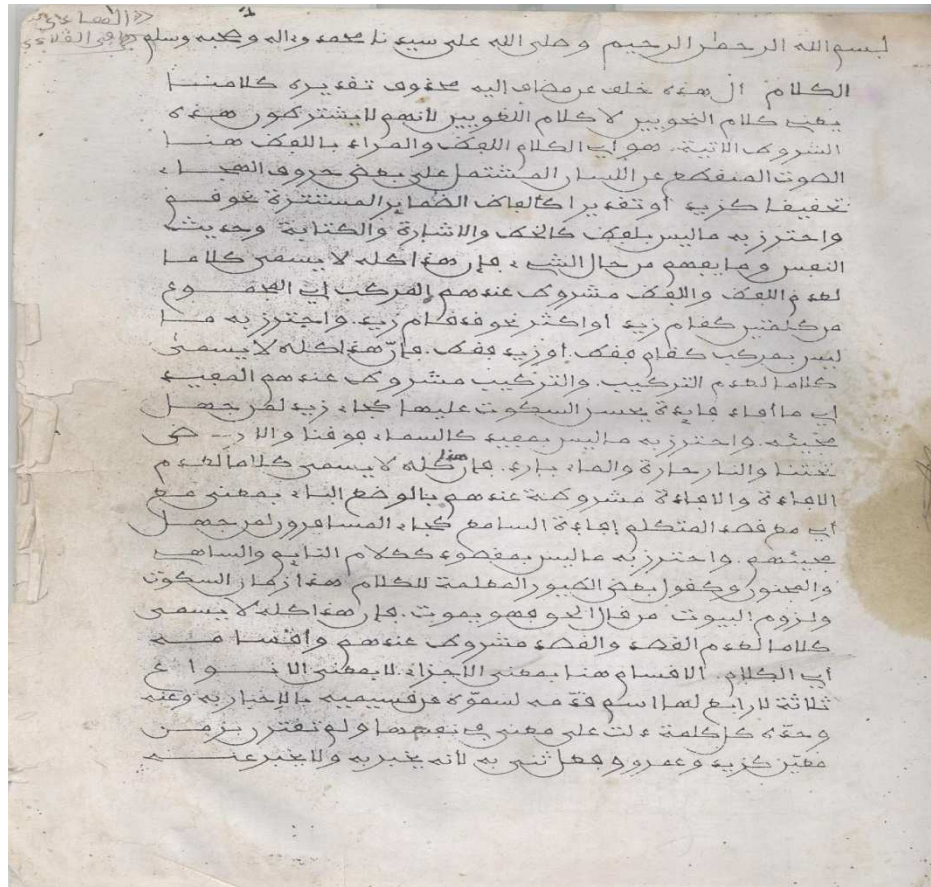 بسم الله الرحمن الرحيم وصلى الله على سيدنا محمد وءاله وصحبه وسلم
الكلام ال هذه خلف عن مضاف إليه محذوف تقديره كلامنا
يعني كلام النحويين لا كلام اللغويين لأنهم لا يشترطون هذه
الشروط الاتية. هو أي الكلام اللفظ والمراد باللفظ هنا
الصوت المنقطع عن اللسان المشتمل على بعض حروف الهجاء
تحقيقا كزيد أو تقديرا كألفاظ الضماير المستترة نحو قم
واحترز به مما ليس بلفظ كالخط والاشارة والكتابة وحديث
النفس وما يفهم من حال الشيء فإن هذا كله لا يسمى كلاما
لعدم اللفظ واللفظ مشروط عندهم المركب أي المجموع
من كلمتين كقام زيد أو اكثر نحو قد قام زيد. واحترز به ما
ليس بمركب كقام فقط. أو زيد فقط. فإنّ هذا كله لا يسمى
كلاما لعدم التركيب. والتركيب مشروط عندهم المفيد
أي ما أفاد فايدة يحسن السكوت عليها كجاء زيد لمن جهل
مجيئه. واحترز به ما ليس بمفيد كالسماء فوقنا والارض
تحتنا والنار حارة والماء بارد. فإن هذا كله لا يسمى كلاما لعدم
الافادة والافادة مشروطة عندهم بالوضع الباء بمعنى مع
أي مع قصد المتكلم إفادة السامع كجاء المسافرون لمن جهل
مجيئهم. واحترز به ما ليس بمقصود ككلام النايم والساهي
والمجنون وكقول بعض الطيور المعلمة للكلام هذا زمان السكوت
ولزوم البيوت من قال الحق فهو يموت. فإن هذا كله لا يسمى
كلاما لعدم القصد والقصد مشروط عندهم وأقسامه
أي الكلام. الاقسام هنا بمعنى الأجزاء. لا بمعنى الانواع
ثلاثة لا رابع لها اسم قدّمه لسموّه عن قسيميه بالإخبار به وعنه
وحدّه كل كلمة دلت على معنى في نفسها ولم تقترن بزمن
معيّن كزيد وعمرو وفعل ثنى به لأنه يخبر به ولا يخبر عنه